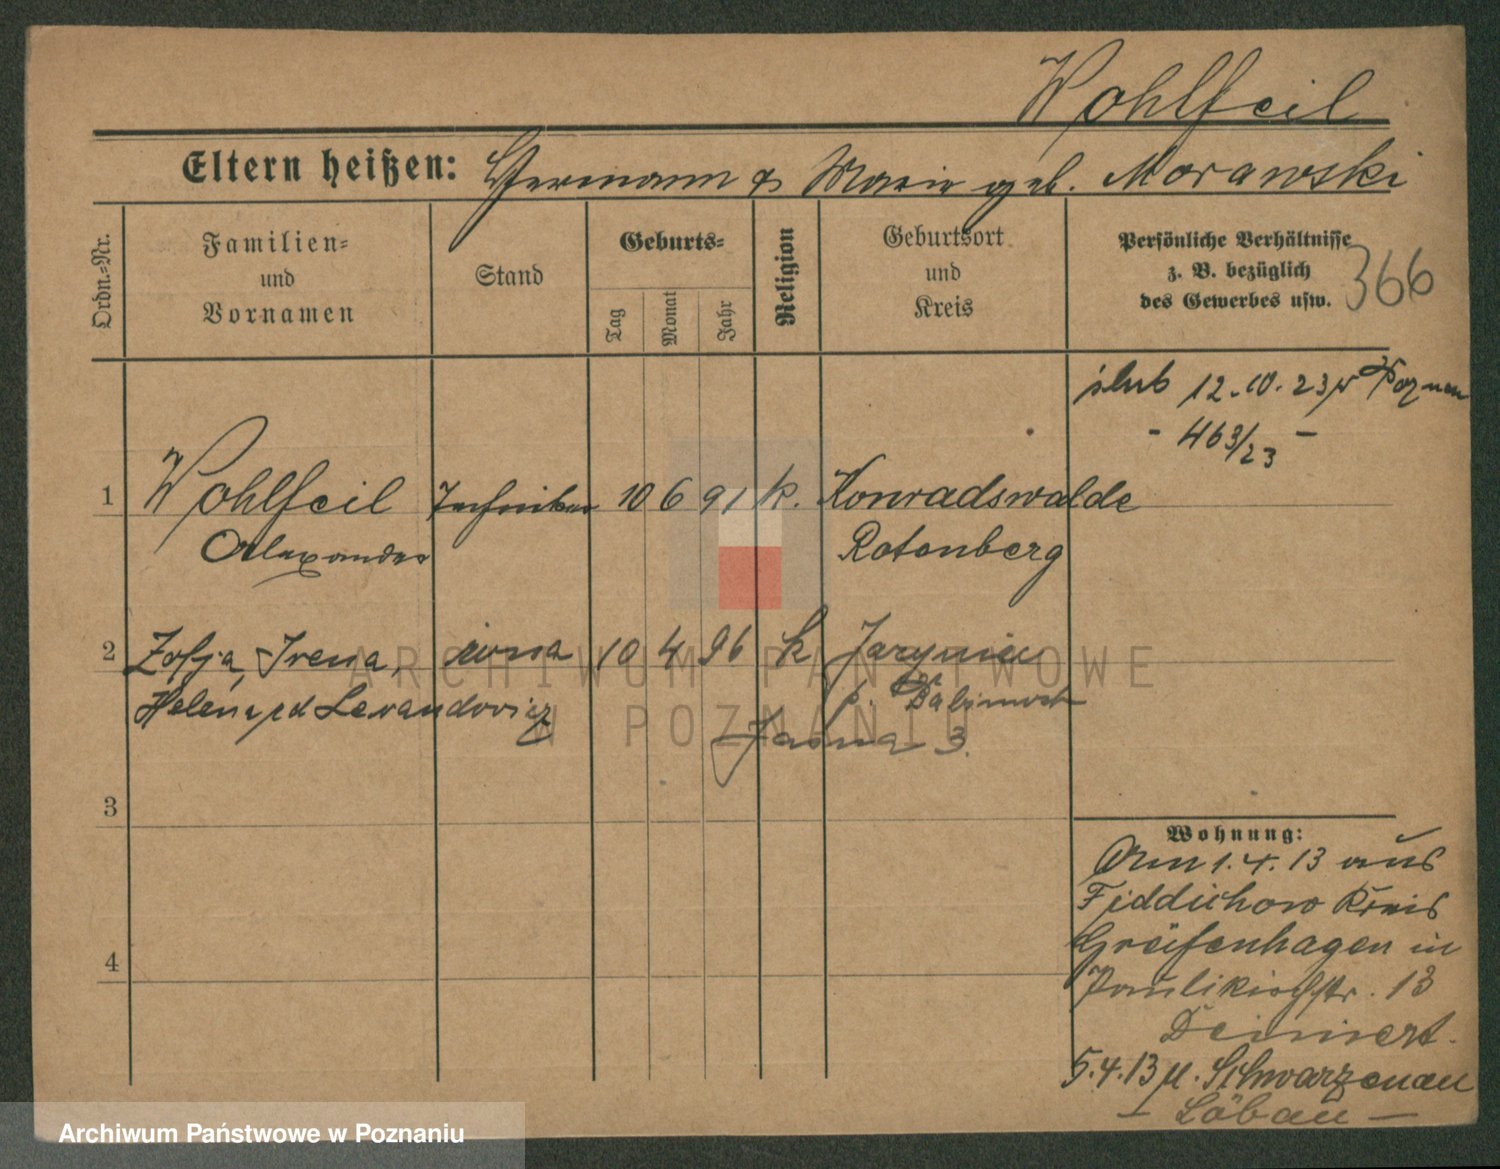 Wohlfeil
Eltern heißen: Hermann & Marie geb. Morawski
Ordn.-Nr.
Familien-
und
Vornamen
Stand
Geburts-
Tag
Monat
Jahr
Religion
Geburtsort
und
Kreis
Persönliche Verhältnisse
z. B. bezüglich
des Gewerbes usw.
366
ślub 12.10.23 w Poznan
- 463/23 -
1 Wohlfeil Techniker 10 6 91 k. Konradswalde
Alexander Rotenberg
2 Zofja, Irena, żona 10 4 96 k
Helena pd Lewandowicz p. Babimost
Jasna 3.
3
4
Wohnung:
Am 1.4.13 aus
Fiddichow Kreis
Greifenhagen in
Paulikirchstr. 13
5.4.13 n. Schwarzenau
- Löbau -
ARCHIWUM PAŃSTWOWE
W POZNANIU
Archiwum Państwowe w Poznaniu